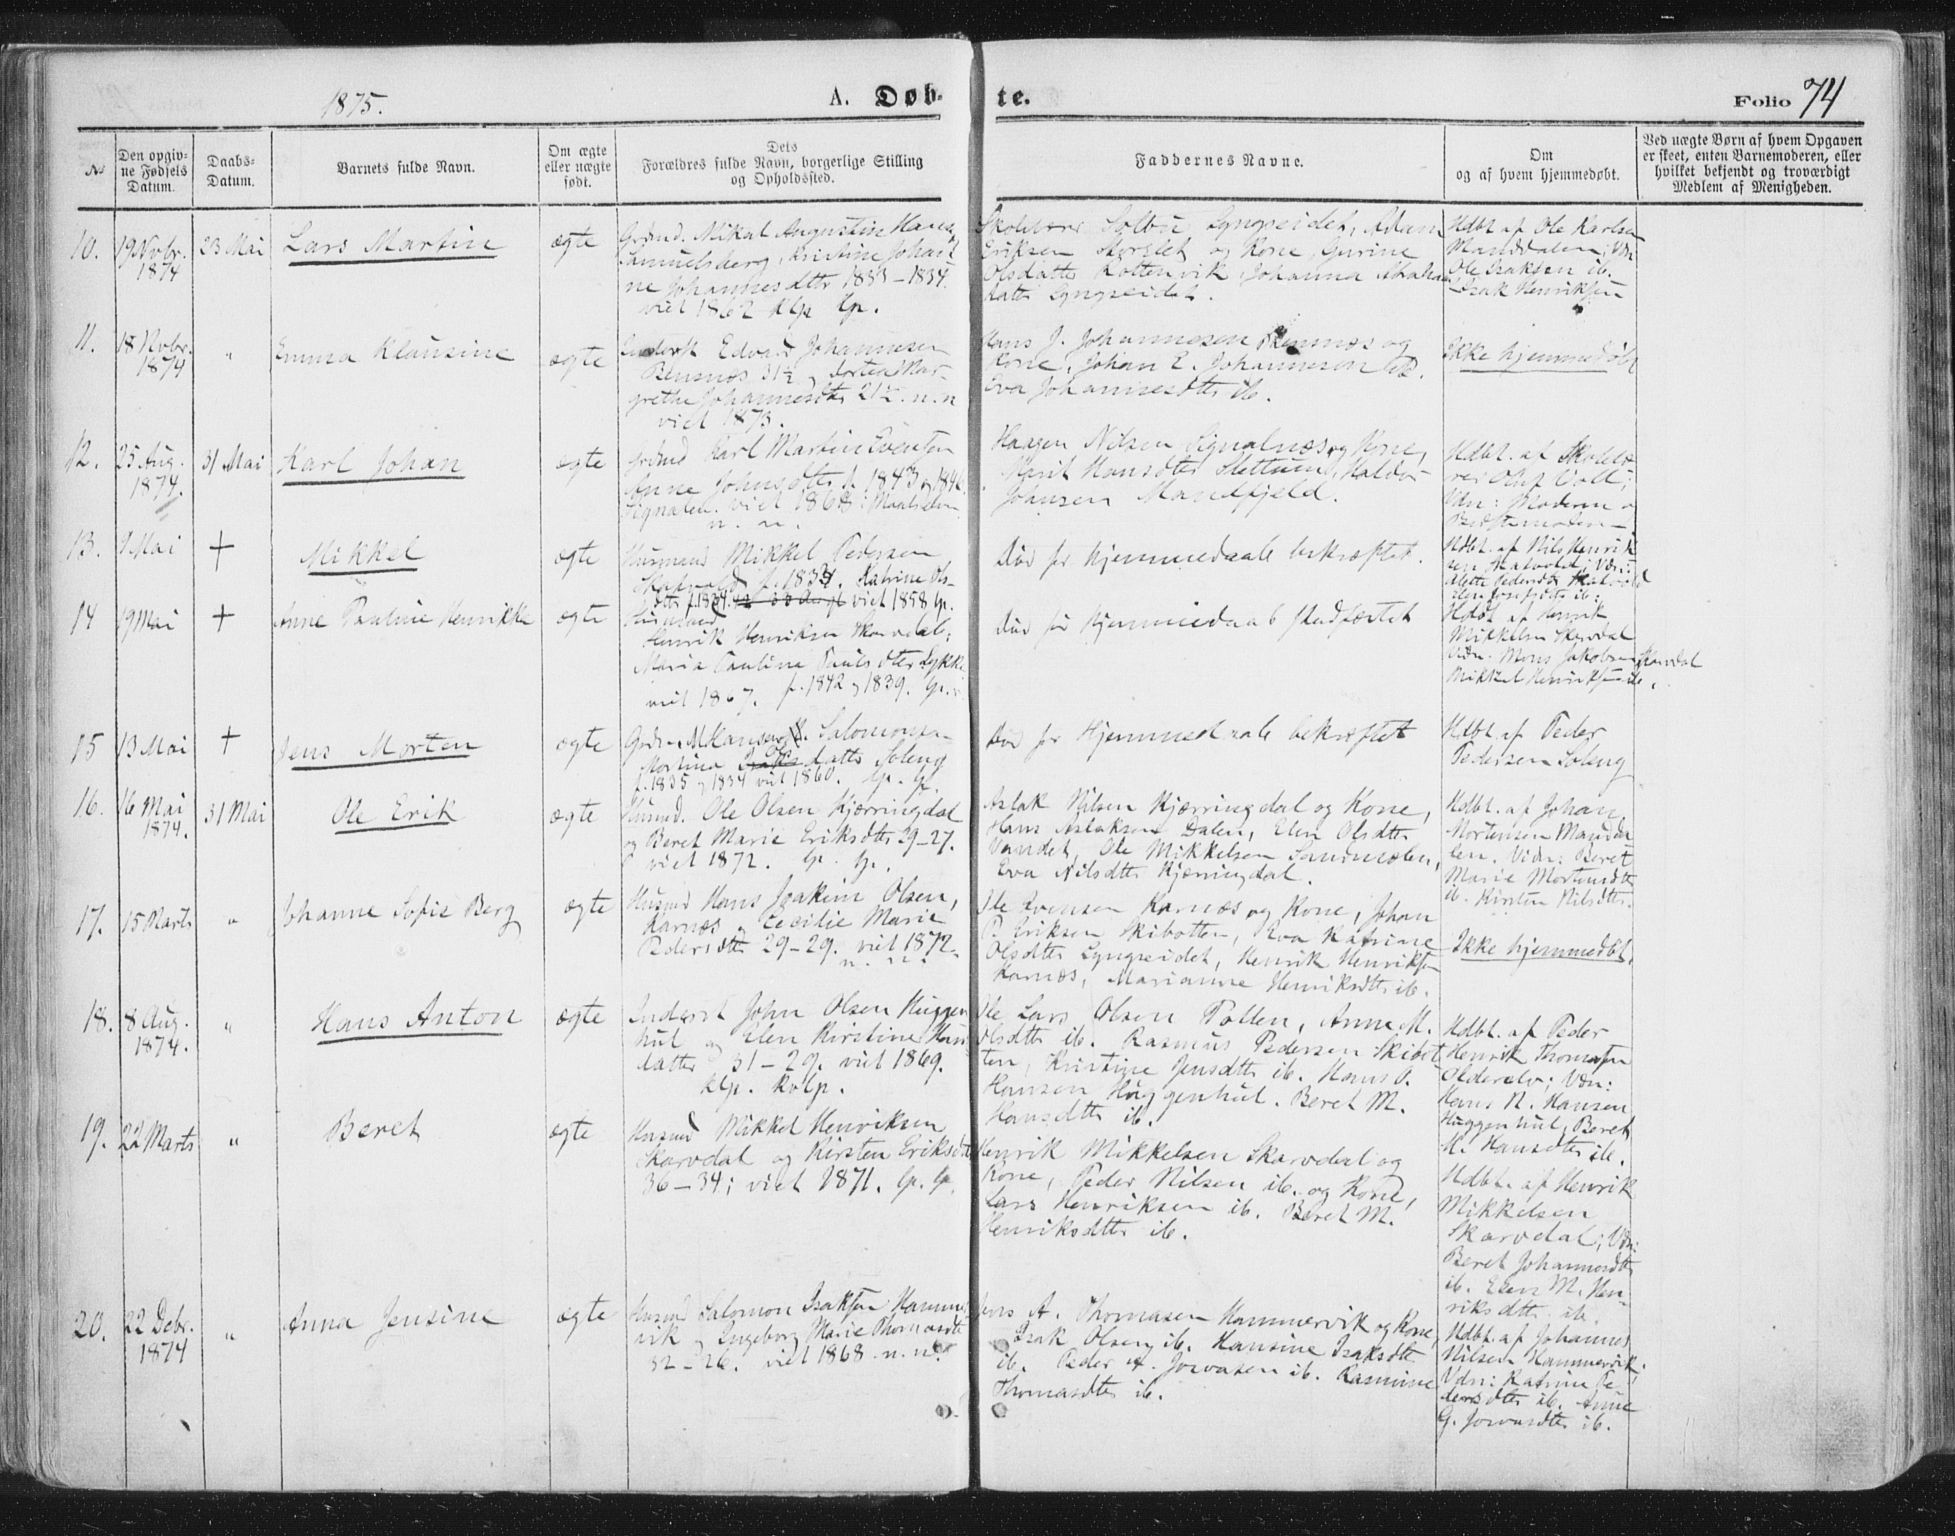 1875.
A. Døb-
te.
Folio 74
No
Den opgiv-
ne Fødsels
Datum.
Daabs-
Datum.
Barnets fulde Navn.
Om ægte
eller uægte
født.
Dets
Forældres fulde Navn, borgerlige Stilling
og Opholdssted.
Faddernes Navne.
Om
og af hvem hjemmedøbt.
Ved uægte Børn af hvem Opgaven
er skeet, enten Barnemoderen, eller
hvilket bekjendt og troværdigt
Medlem af Menigheden.
10.
19 Novbr.
1874
23 Mai
Lars Martin
ægte
Mikal Augustin Hans
Samuelsberg, Kristine Johan
ne Johannesdttr 1833-1834.
viet 1862 klp lp.
Skolelærer Solbu Lyngseidet, Adam
Eriksen Storslet og Kone, Gurine
Olsdatter Rottenvik, Johanna
datter Lyngseidet.
Hdbt. af Ole Karlsen
Manddalen; Vdn
Ole Isaksen ib.
Isak Henriksen
11.
18 Novbr.
1874
"
Emma Klausine
ægte
Edvard Johannesen
Bensnæs 31½ og Dortea Mar-
grethe Johannesdtr 21½. n. n
viet 1873.
Hans J. Johannesen Bensnæs og
Kone, Johan E. Johannesen ib.
Eva Johannesdtter ib.
Ikke hjemmedøbt
12.
25 Aug.
1874.
31 Mai
Karl Johan
ægte
Karl Martin Eventsen
Anne Johnsdtter f. 1843 og 1846
Signalen. viet 1868 i Maalselven
n. n.
Haagen Nilsen Signalnæs og Kone,
Marit Hansdtter Slettum, Haldor
Johnsen Mandfjeld.
Hdbt. af Skolelæ
rer Oluf Voll;
Vdn: Moderen og
Bedstemoderen
13.
1 Mai
+
Mikkel
ægte
Husmand Mikkel Pedersen
Skatvold f. 1834. Katrine Ols-
dttr f. 1834. viet 1858 lp.
Død før Hjemmedaab bekræftet.
Hdbt. af Nils Henrik
sen Skatvold; Vdn:
14
19 Mai
+
Anne Pauline Henrikke
ægte
Husmand
Henrik Henriksen Skarvdal;
Maria Paulina Paulsdtter Lykke
viet 1867. f. 1842 og 1839. lp.
Død før Hjemmedaab stadfæstet
Hdbt af Henrik
Mikkelsen Skarvdal
Vidn. Mons Jakobsen Skarvdal
Mikkel Henriksen ib.
15
13 Mai
+
Jens Morten
ægte
Salomonsen
Martina datter Soleng
f. 1835 og 1834 viet 1860. lp. lp.
Død før Hjemmedaab bekræftet
Hdbt af Peder
Pedersen Soleng
16.
16 Mai
1874.
31 Mai
Ole Erik
ægte
Husmd. Ole Olsen Kjærringdal
og Beret Marie Eriksdtter 39-27.
viet 1872. lp. lp.
Aslak Nilsen Kjærringdal og Kone,
Hans Aslaksen Dalen, Elen Olsdtter
Vandet, Ole Mikkelsen Sandmælen,
Eva Nilsdtter Kjærringdal.
Hdbt. af Johan
Mortensen Mandda
len. Vidn: Beret
Marie Mortensdtter
ib. Kirsten Nilsdtter.
17.
15 Marts
"
Johanne Sofie Berg
ægte
Husmd Hans Joakim Olsen,
Karnæs og Cecilie Marie
Pedersdtter 29-29. viet 1872.
n. n.
Ole Evensen Karnæs og Kone, Johan
P. Eriksen Skibotten, Eva Katrine
Olsdtter Lyngseidet, Henrik Henriksen
Karnæs, Marianne Henriksdtter ib.
Ikke hjemmedøbt.
18.
8 Aug.
1874.
"
Hans Anton
ægte
Inderst John Olsen Huggen
hul og Elen Kirstine Hans
datter 31-29. viet 1869.
klp. kvlp.
Ole Lars Olsen Pollen, Anne M.
Olsdtter ib. Rasmus Pedersen Skibot
ten, Kristine Jensdtter ib. Hans O.
Hansen Huggenhul. Beret M.
Hansdtter ib.
Hdbt. af Peder
Henrik Thomasen
Olderelv; Vdn:
Hans N. Hansen
Huggenhul, Beret
M. Hansdtter ib.
19.
22 Marts
"
Beret
ægte
Husmd Mikkel Henriksen
Skarvdal og Kirsten Eriksdtr
36-34; viet 1871. lp. lp.
Henrik Mikkelsen Skarvdal og
Kone, Peder Nilsen ib. og Kone,
Lars Henriksen ib. Beret M.
Henriksdtter ib.
Hdbt. af Henrik
Mikkelsen
Skarvdal; Vdn:
Beret Johannesdtter
ib. Elen M. Hen-
riksdtter ib.
20.
22 Debr.
1874
"
Anna Jensine
ægte
Husmd Salomon Isaksen Hammer
vik og Ingeborg Marie Thomasdtr
32-26. viet 1868. n. n.
Jens A. Thomasen Hammervik og Kone,
Isak Olsen ib. Hansine Isaksdtter
ib. Peder A. Jovasen ib. Rasmine
Thomasdtter ib.
Hdbt. af Johannes
Nilsen Hammervik;
Vdn: Katrine Pe-
dersdtter ib. Anne
G. Jovasdtter ib.